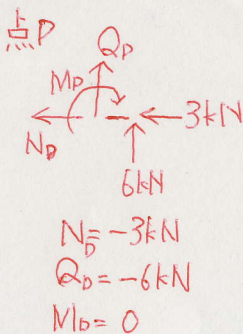 点D
Q_D
M_D
N_D
3kN
6kN
N_D=-3kN
Q_D=-6kN
M_D=0